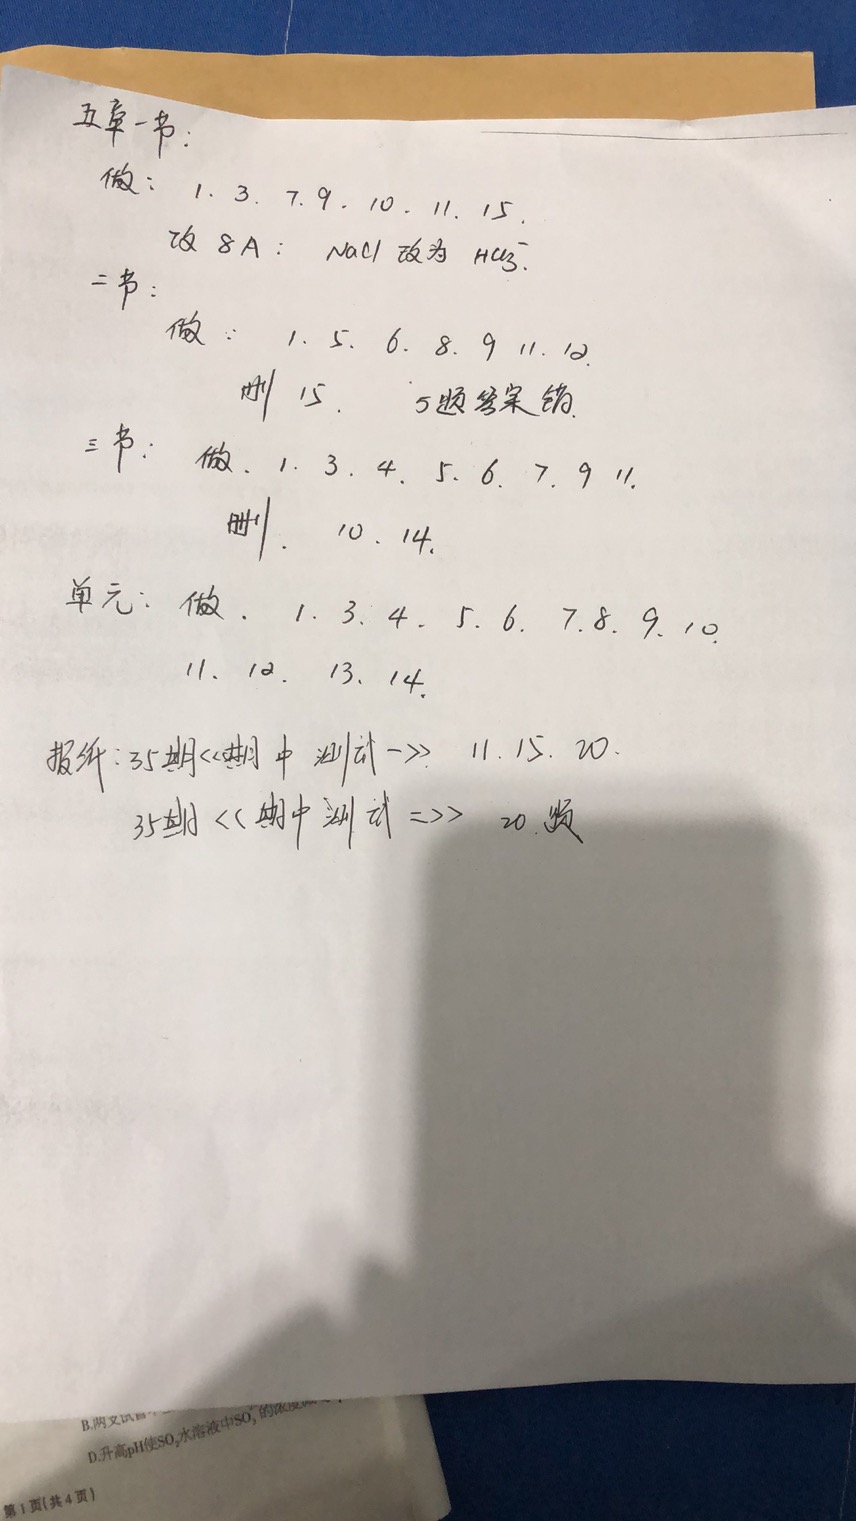 五章一节:
做: 1. 3. 7. 9. 10. 11. 15.
改 8A: NaCl 改为
二节:
做: 1. 5. 6. 8. 9 11. 12.
删 15. 5题答案错.
三节: 做. 1. 3. 4. 5. 6. 7. 9 11.
删. 10. 14.
单元: 做. 1. 3. 4. 5. 6. 7. 8. 9. 10.
11. 12. 13. 14.
报纸: 35期<<期中测试一>> 11. 15. 20.
35期<<期中测试二>> 20.题
B.两支试管
D.升高pH使SO₂水溶液中SO 的浓度
第1页(共4页)